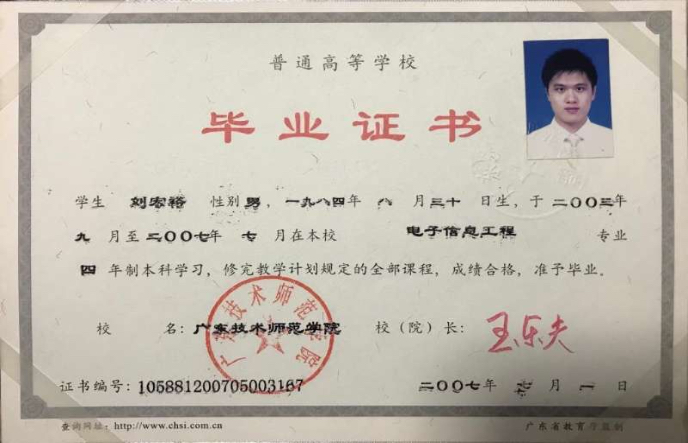 普通高等学校
毕业证书
学生 刘宏裕 性别 男，一九八四年 八 月三十 日生，于 二〇〇三年
九 月至 二〇〇七年 七 月在本校 电子信息工程 专业
四 年制本科学习，修完教学计划规定的全部课程，成绩合格，准予毕业。
校 名：广东技术师范学院 校（院）长：王乐夫
证书编号：105881200705003167 二〇〇七年 七月 一 日
查询网址：http://www.chsi.com.cn 广东省教育厅监制
广东技术师范学院